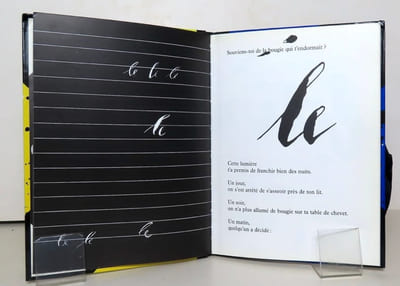 le le le
le
le le le
Souviens-toi de la bougie qui t'endormait ?
le
Cette lumière
t'a permis de franchir bien des nuits.
Un jour,
on s'est arrêté de s'asseoir près de ton lit.
Un soir,
on n'a plus allumé de bougie sur ta table de chevet.
Un matin,
quelqu'un a décidé :